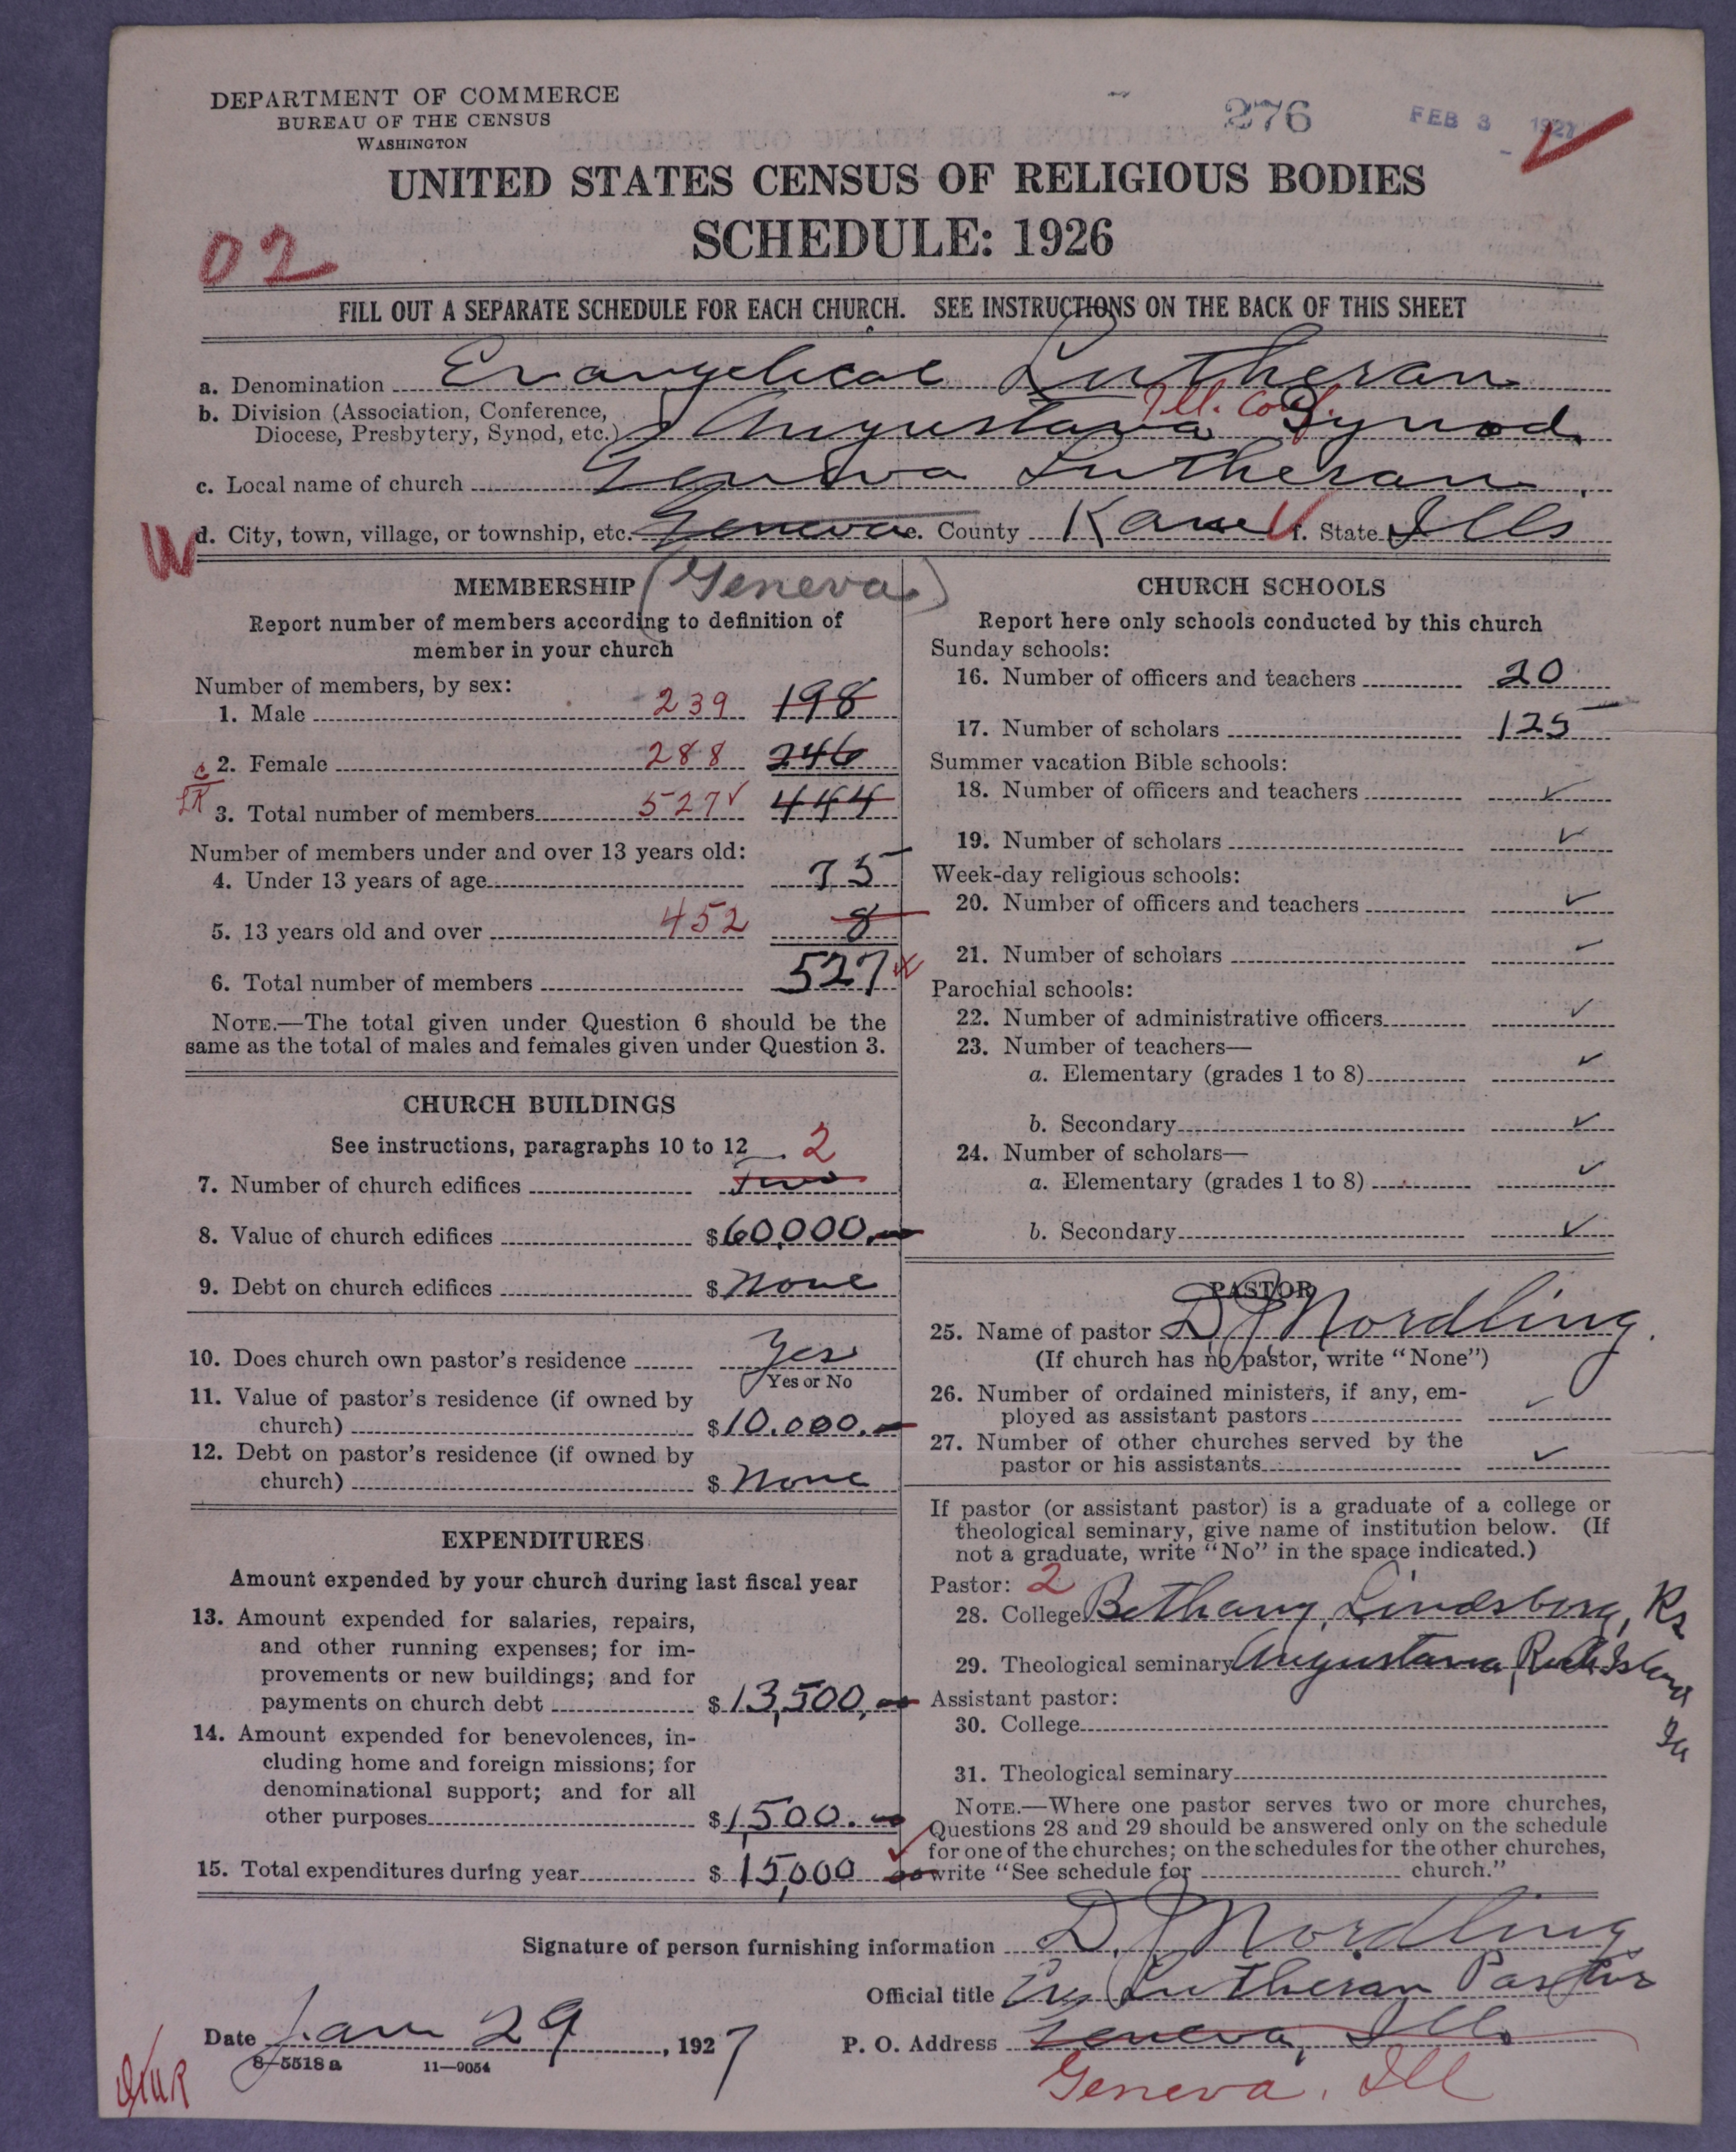 DEPARTMENT OF COMMERCE
BUREAU OF THE CENSUS
WASHINGTON
276
FEB 3 1927
UNITED STATES CENSUS OF RELIGIOUS BODIES
SCHEDULE: 1926
02
FILL OUT A SEPARATE SCHEDULE FOR EACH CHURCH. SEE INSTRUCTIONS ON THE BACK OF THIS SHEET
a. Denomination Evangelical Lutheran
Ill. Conf.
b. Division (Association, Conference,
Diocese, Presbytery, Synod, etc.) Augustana Synod.
c. Local name of church Geneva Lutheran
d. City, town, village, or township, etc. Geneva e. County Kane f. State Ills
(Geneva)
MEMBERSHIP
Report number of members according to definition of
member in your church
Number of members, by sex:
1. Male 239 198
2. Female 288 246
3. Total number of members 527 444
Number of members under and over 13 years old:
4. Under 13 years of age 75
5. 13 years old and over 452 8
6. Total number of members 527
NOTE.—The total given under Question 6 should be the
same as the total of males and females given under Question 3.
CHURCH BUILDINGS
See instructions, paragraphs 10 to 12
2
7. Number of church edifices two
8. Value of church edifices $60,000.
9. Debt on church edifices $ None
10. Does church own pastor's residence Yes
Yes or No
11. Value of pastor's residence (if owned by
church) $10.000.
12. Debt on pastor's residence (if owned by
church) $ None
EXPENDITURES
Amount expended by your church during last fiscal year
13. Amount expended for salaries, repairs,
and other running expenses; for im-
provements or new buildings; and for
payments on church debt $13,500.
14. Amount expended for benevolences, in-
cluding home and foreign missions; for
denominational support; and for all
other purposes $1,500.
15. Total expenditures during year $15,000
CHURCH SCHOOLS
Report here only schools conducted by this church
Sunday schools:
16. Number of officers and teachers 20
17. Number of scholars 125
Summer vacation Bible schools:
18. Number of officers and teachers ✓
19. Number of scholars ✓
Week-day religious schools:
20. Number of officers and teachers ✓
21. Number of scholars ✓
Parochial schools:
22. Number of administrative officers ✓
23. Number of teachers—
a. Elementary (grades 1 to 8) ✓
b. Secondary ✓
24. Number of scholars—
a. Elementary (grades 1 to 8) ✓
b. Secondary ✓
PASTOR
25. Name of pastor D J Nordling
(If church has no pastor, write "None")
26. Number of ordained ministers, if any, em-
ployed as assistant pastors ✓
27. Number of other churches served by the
pastor or his assistants ✓
If pastor (or assistant pastor) is a graduate of a college or
theological seminary, give name of institution below. (If
not a graduate, write "No" in the space indicated.)
Pastor: 2
28. College Bethany, Lindsborg, Ks
29. Theological seminary Augustana, Rock Island
Assistant pastor:
30. College
31. Theological seminary
NOTE.—Where one pastor serves two or more churches,
Questions 28 and 29 should be answered only on the schedule
for one of the churches; on the schedules for the other churches,
write "See schedule for church."
Signature of person furnishing information D. J. Nordling
Official title Ev Lutheran Pastor
Date Jan 29, 1927
P. O. Address Geneva, Ills
Geneva, Ill
8-5518a 11—9054